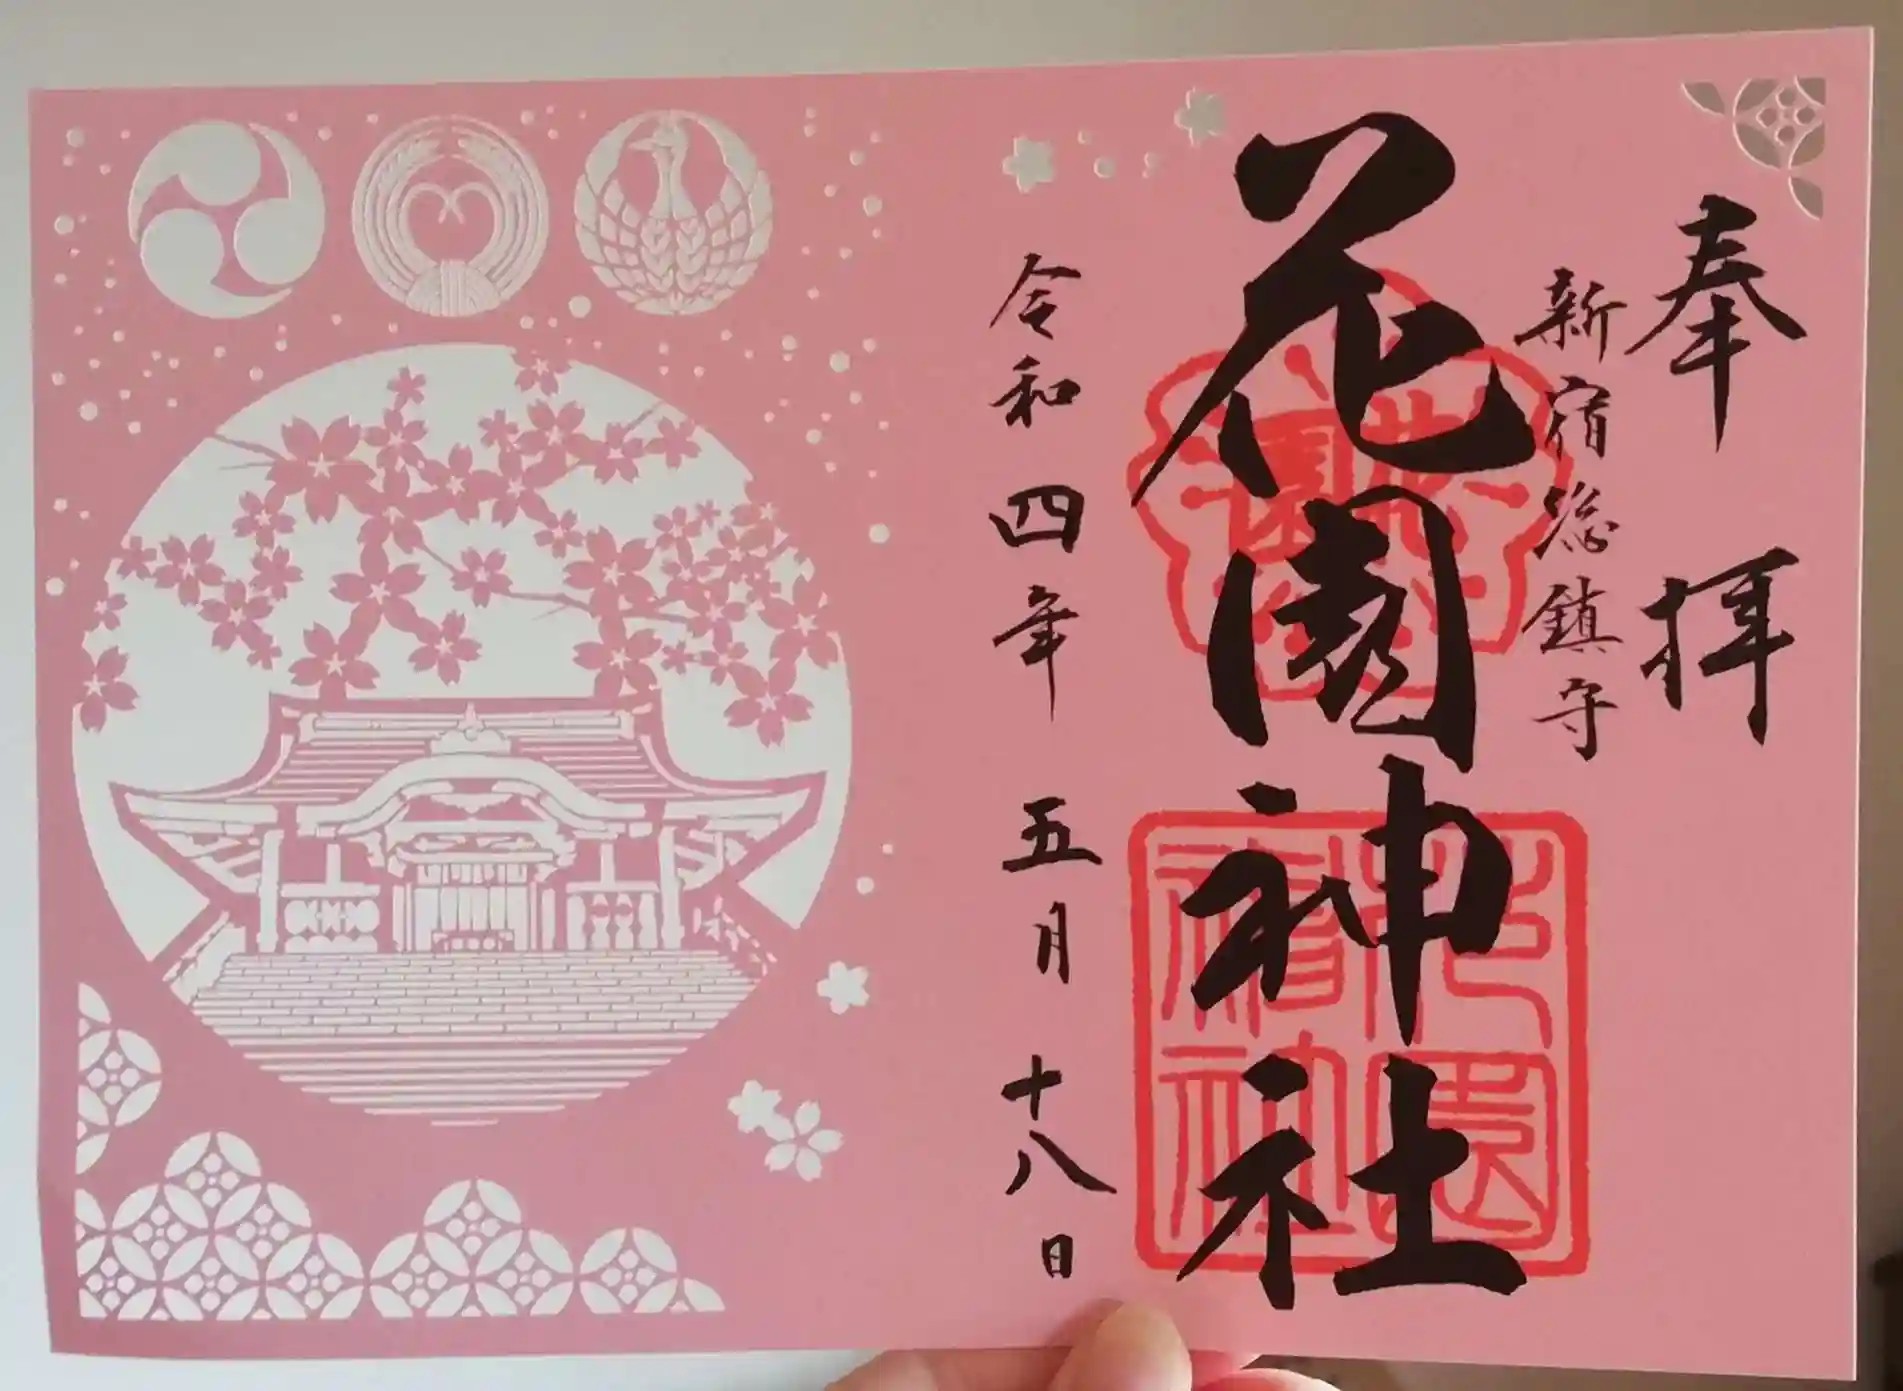 奉拝
新宿総鎮守
花園神社
令和四年五月十八日